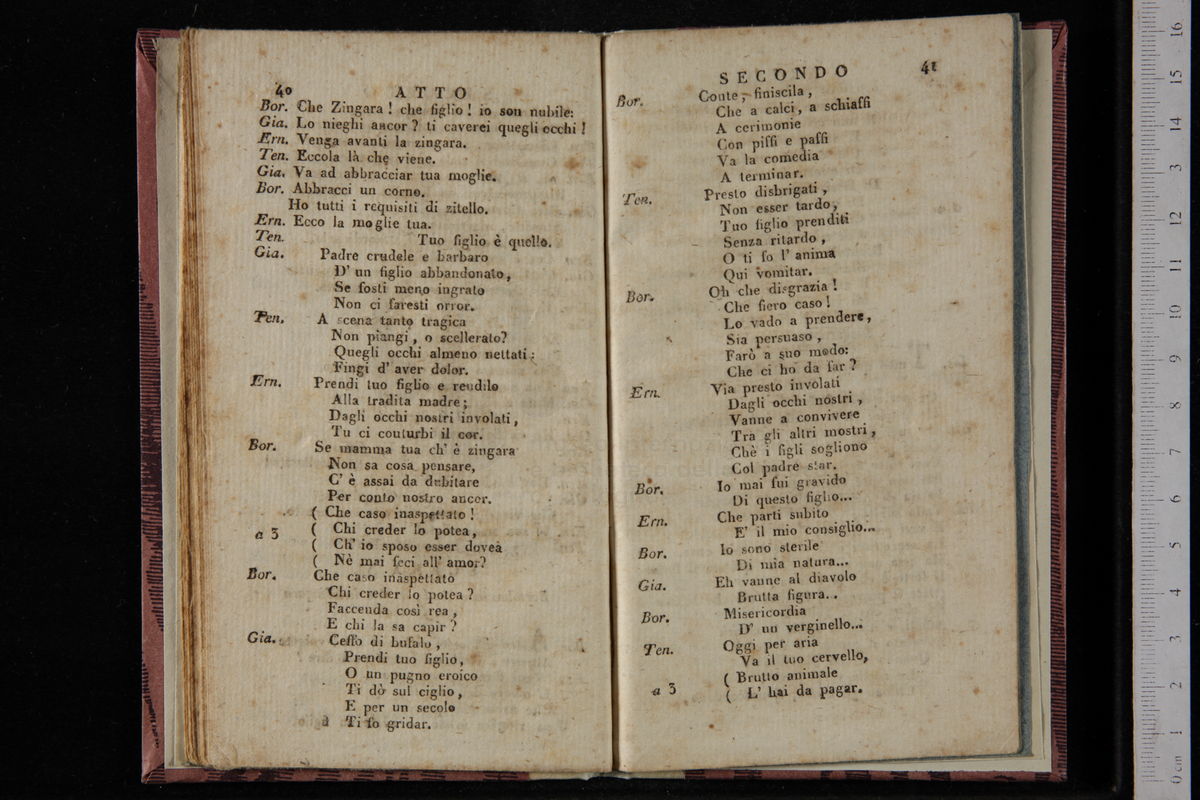 40 ATTO
Bor. Che Zingara ! che figlio ! io son nubile:
Gia. Lo nieghi ancor ? ti caverei quegli occhi !
Ern. Venga avanti la zingara.
Ten. Eccola là che viene.
Gia. Va ad abbracciar tua moglie.
Bor. Abbracci un corno.
Ho tutti i requisiti di zitello.
Ern. Ecco la moglie tua.
Ten. Tuo figlio è quello.
Gia. Padre crudele e barbaro
D' un figlio abbandonato,
Se fosti meno ingrato
Non ci faresti orror.
Ten. A scena tanto tragica
Non piangi, o scellerato?
Quegli occhi almeno nettati;
Fingi d' aver dolor.
Ern. Prendi tuo figlio e rendilo
Alla tradita madre;
Dagli occhi nostri involati,
Tu ci conturbi il cor.
Bor. Se mamma tua ch' è zingara
Non sa cosa pensare,
C' è assai da dubitare
Per conto nostro ancor.
( Che caso inaspettato !
a 3 ( Chi creder lo potea,
( Ch' io sposo esser dovea
( Nè mai feci all' amor?
Bor. Che caso inaspettato
Chi creder lo potea ?
Faccenda così rea,
E chi la sa capir ?
Gia. Ceffo di bufalo,
Prendi tuo figlio,
O un pugno eroico
Ti dò sul ciglio,
E per un secolo
Ti fo gridar.
SECONDO 41
Bor. Conte, finiscila,
Che a calci, a schiaffi
A cerimonie
Con piffi e paffi
Va la comedia
A terminar.
Ten. Presto disbrigati,
Non esser tardo,
Tuo figlio prenditi
Senza ritardo,
O ti fo l' anima
Qui vomitar.
Bor. Oh che disgrazia !
Che fiero caso !
Lo vado a prendere,
Sia persuaso,
Farò a suo modo:
Che ci ho da far ?
Ern. Via presto involati
Dagli occhi nostri,
Vanne a convivere
Tra gli altri mostri,
Chè i figli sogliono
Col padre star.
Bor. Io mai fui gravido
Di questo figlio...
Ern. Che parti subito
E' il mio consiglio...
Bor. Io sono sterile
Di mia natura...
Gia. Eh vanne al diavolo
Brutta figura..
Bor. Misericordia
D' un verginello...
Ten. Oggi per aria
Va il tuo cervello,
( Brutto animale
a 3 ( L' hai da pagar.
0 cm 1 2 3 4 5 6 7 8 9 10 11 12 13 14 15 16